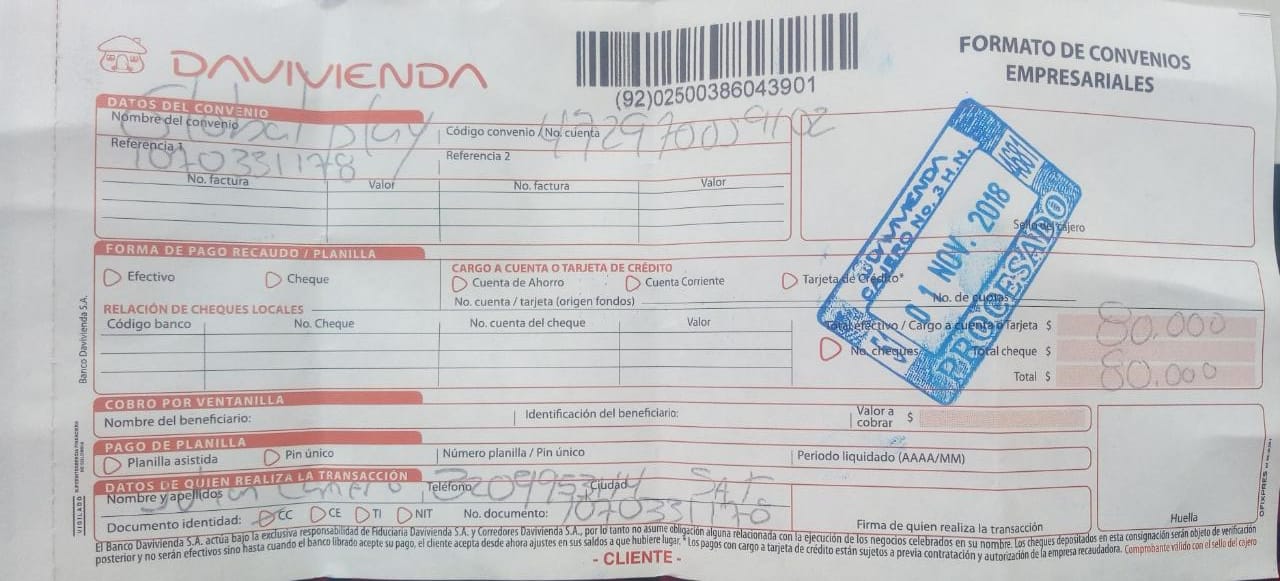 DAVIVIENDA
(92)02500386043901
FORMATO DE CONVENIOS
EMPRESARIALES
DATOS DEL CONVENIO
Nombre del convenio Global play
Código convenio / No. cuenta
Referencia 1 1070331178
Referencia 2
No. factura Valor No. factura Valor
Sello del cajero
DAVIVIENDA
CAJERO No. 3 H.N.
01 NOV. 2018
PROCESADO
4681
FORMA DE PAGO RECAUDO / PLANILLA
Efectivo Cheque
CARGO A CUENTA O TARJETA DE CRÉDITO
Cuenta de Ahorro Cuenta Corriente Tarjeta de Crédito*
No. cuenta / tarjeta (origen fondos) No. de cuotas
RELACIÓN DE CHEQUES LOCALES
Código banco No. Cheque No. cuenta del cheque Valor
Total efectivo / Cargo a cuenta o Tarjeta $ 80.000
No. cheques Total cheque $
Total $ 80.000
COBRO POR VENTANILLA
Nombre del beneficiario: Identificación del beneficiario: Valor a cobrar $
PAGO DE PLANILLA
Planilla asistida Pin único Número planilla / Pin único Periodo liquidado (AAAA/MM)
DATOS DE QUIEN REALIZA LA TRANSACCIÓN
Nombre y apellidos Teléfono Ciudad
Documento identidad: CC CE TI NIT No. documento: 1070331178
Firma de quien realiza la transacción
Huella
El Banco Davivienda S.A. actúa bajo la exclusiva responsabilidad de Fiduciaria Davivienda S.A. y Corredores Davivienda S.A., por lo tanto no asume obligación alguna relacionada con la ejecución de los negocios celebrados en su nombre. Los cheques depositados en esta consignación serán objeto de verificación
posterior y no serán efectivos sino hasta cuando el banco librado acepte su pago, el cliente acepta desde ahora ajustes en sus saldos a que hubiere lugar. *Los pagos con cargo a tarjeta de crédito están sujetos a previa contratación y autorización de la empresa recaudadora. Comprobante válido con el sello del cajero
- CLIENTE -
Banco Davivienda S.A.
VIGILADO SUPERINTENDENCIA FINANCIERA DE COLOMBIA